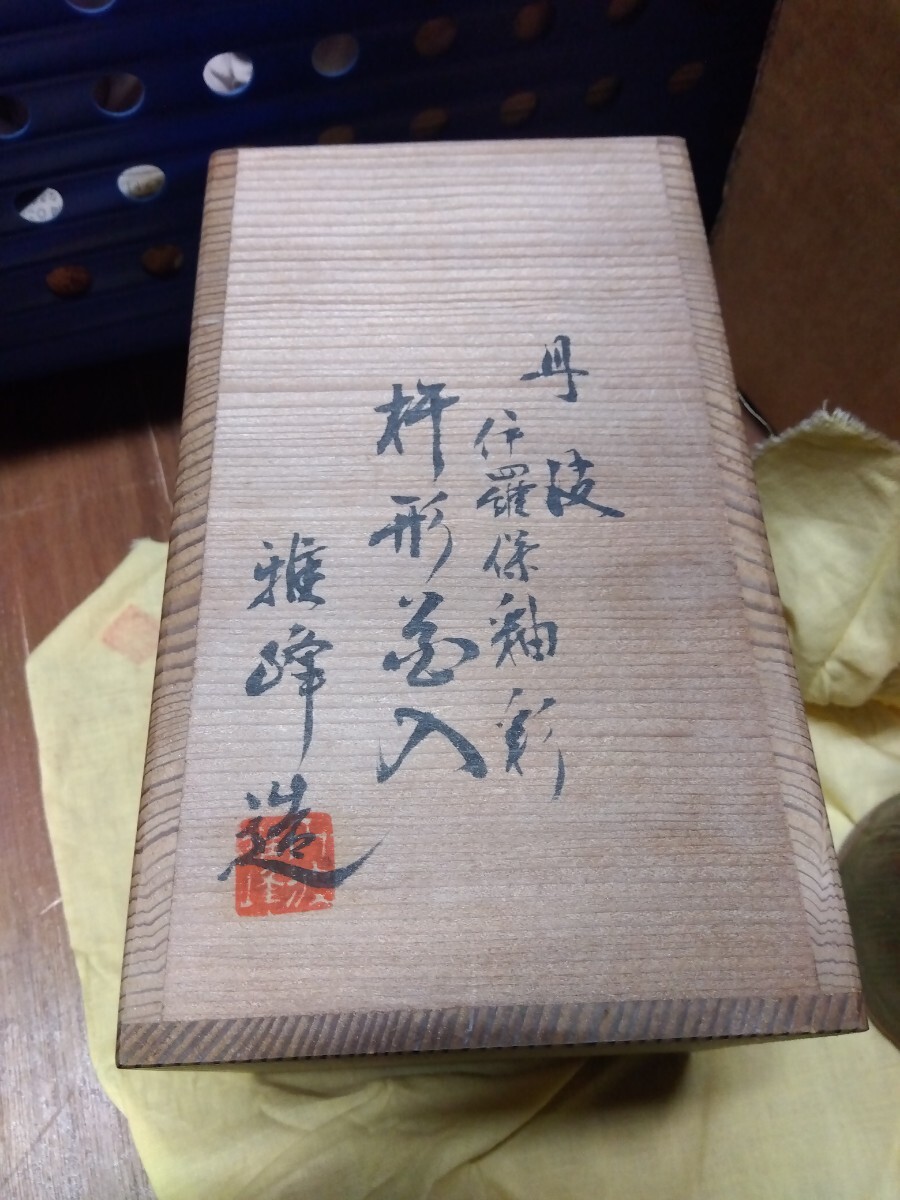 丹波
伊羅保釉彩
杵形花入
雅峰造